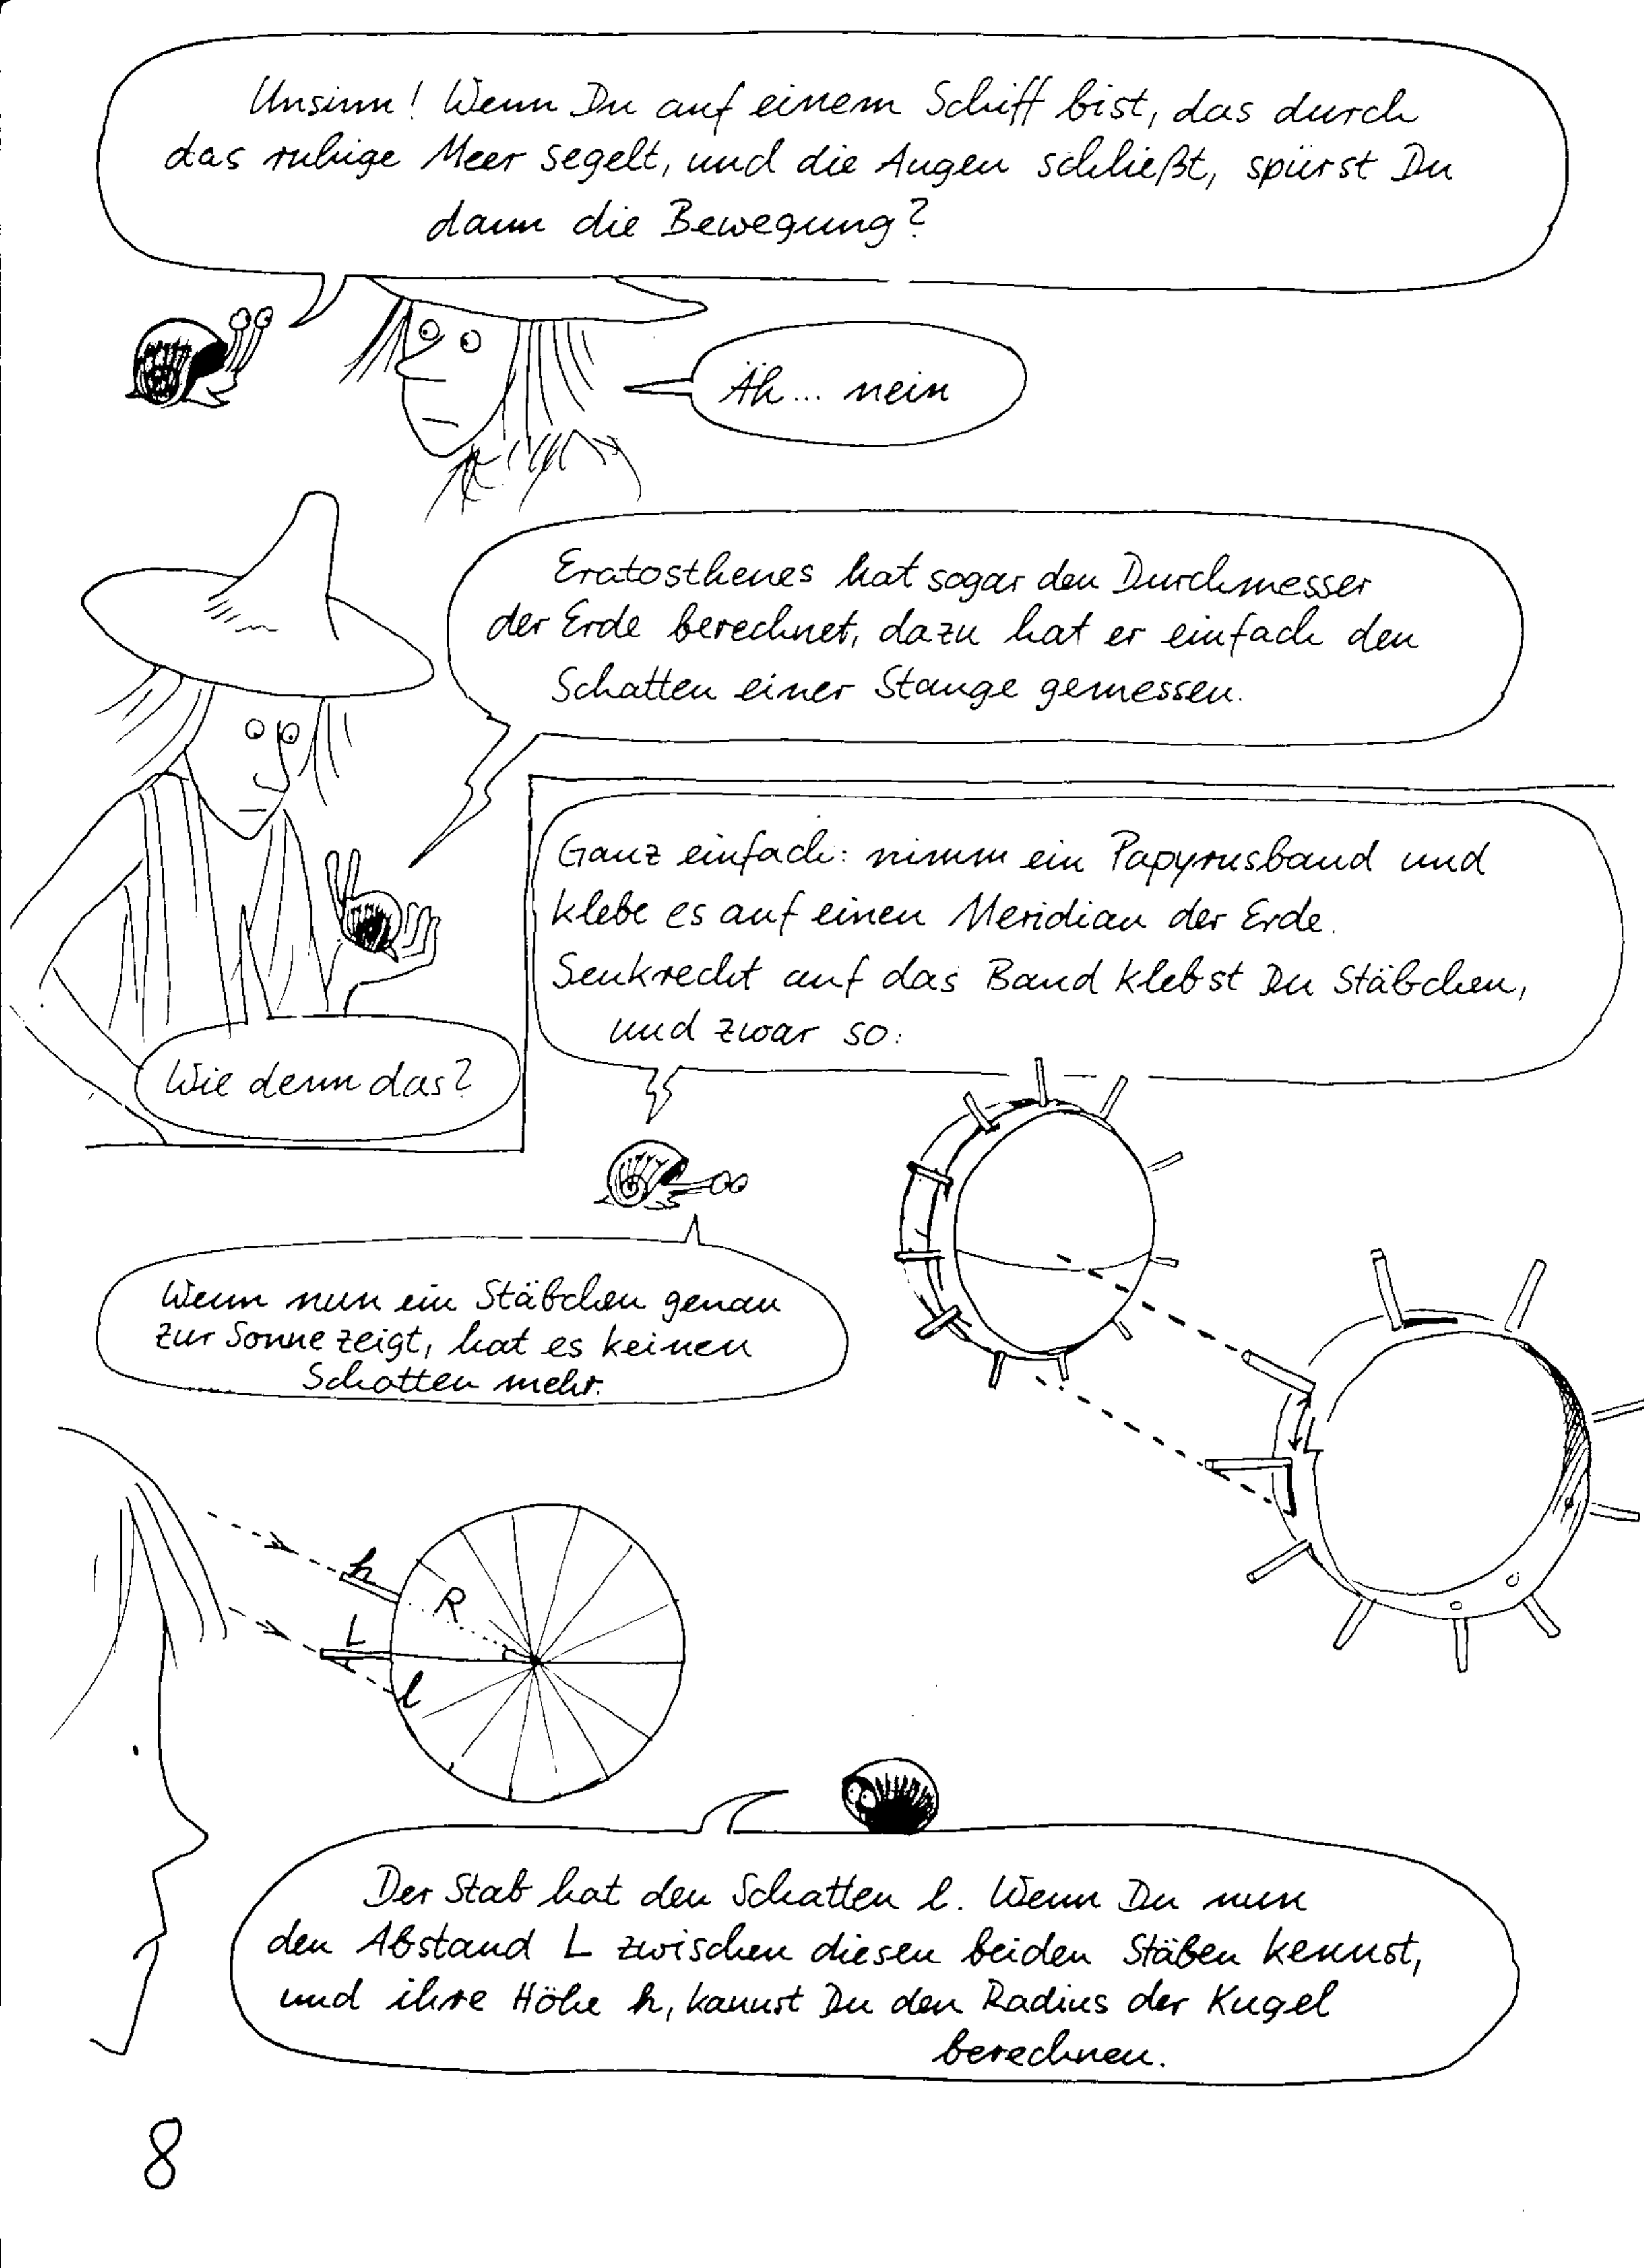 Unsinn! Wenn Du auf einem Schiff bist, das durch
das ruhige Meer segelt, und die Augen schließt, spürst Du
dann die Bewegung?
Äh... nein
Eratosthenes hat sogar den Durchmesser
der Erde berechnet, dazu hat er einfach den
Schatten einer Stange gemessen.
Ganz einfach: nimm ein Papyrusband und
klebe es auf einen Meridian der Erde.
Senkrecht auf das Band klebst Du Stäbchen,
und zwar so:
Wie denn das?
Wenn nun ein Stäbchen genau
zur Sonne zeigt, hat es keinen
Schatten mehr.
L
h
R
L
l
Der Stab hat den Schatten l. Wenn Du nun
den Abstand L zwischen diesen beiden Stäben kennst,
und ihre Höhe h, kannst Du den Radius der Kugel
berechnen.
8